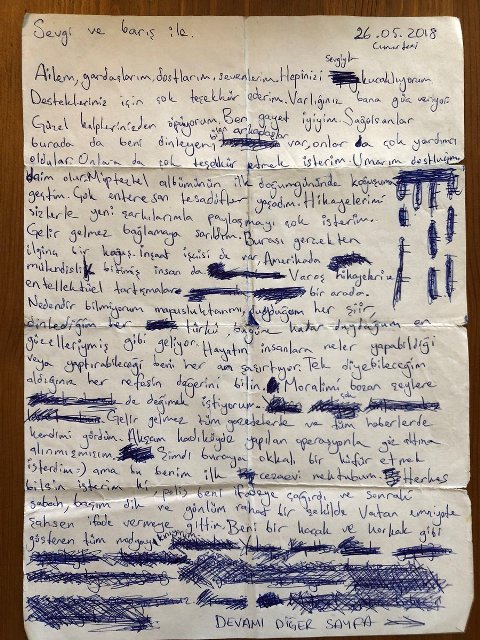 Sevgi ve barış ile.
26.05.2018
Cumartesi
sevgiyle
Ailem, gardaşlarım, dostlarım, sevenlerim. Hepinizi kucaklıyorum
Destekleriniz için çok teşekkür ederim. Varlığınız bana güç veriyor.
Güzel kalplerinizden öpüyorum. Ben gayet iyiyim. Sağolsunlar
bilen arkadaşlar
burada da beni dinleyen, var, onlar da çok yardımcı
oldular. Onlara da çok teşekkür etmek isterim. Umarım dostluğumuz
daim olur. Müptezhel albümünün ilk doğumgününde koğuşuma
geçtim. Çok enteresan tesadüfler yaşadım. Hikayelerimi
sizlerle yeni şarkılarımla paylaşmayı çok isterim.
Gelir gelmez bağlamaya sarıldım. Burası gerçekten
ilginç bir koğuş. İnşaat işçisi de var, Amerikada
mühendislik bitmiş insan da Varoş hikayeleri ve
entellektüel tartışmalar bir arada.
Nedendir bilmiyorum mapusluktanmı, duyduğum her şiir,
dinlediğim her türkü bugüne kadar duyduğum en
güzelleriymiş gibi geliyor. Hayatın insanlara neler yapabildiği
veya yaptırabileceği beni her an şaşırtıyor. Tek diyebileceğim
aldığınız her nefesin değerini bilin. Moralimi bozan şeylere
de değinmek istiyorum.
Gelir gelmez tüm gazetelerde ve tüm haberlerde
kendimi gördüm. Akşam kadıköyde yapılan operasyonla göz altına
alınmışmışım. Şimdi buraya okkalı bir küfür etmek
isterdim :) ama bu benim ilk cezaevi mektubum. Herkes
bilsin isterim ki, polis beni ifadeye çağırdı ve sonraki
sabah, başım dik ve gönlüm rahat bir şekilde Vatan emniyete
şahsen ifade vermeye gittim. Beni bir kaçak ve korkak gibi
gösteren tüm medyayı kınıyorum
DEVAMI DİĞER SAYFA →